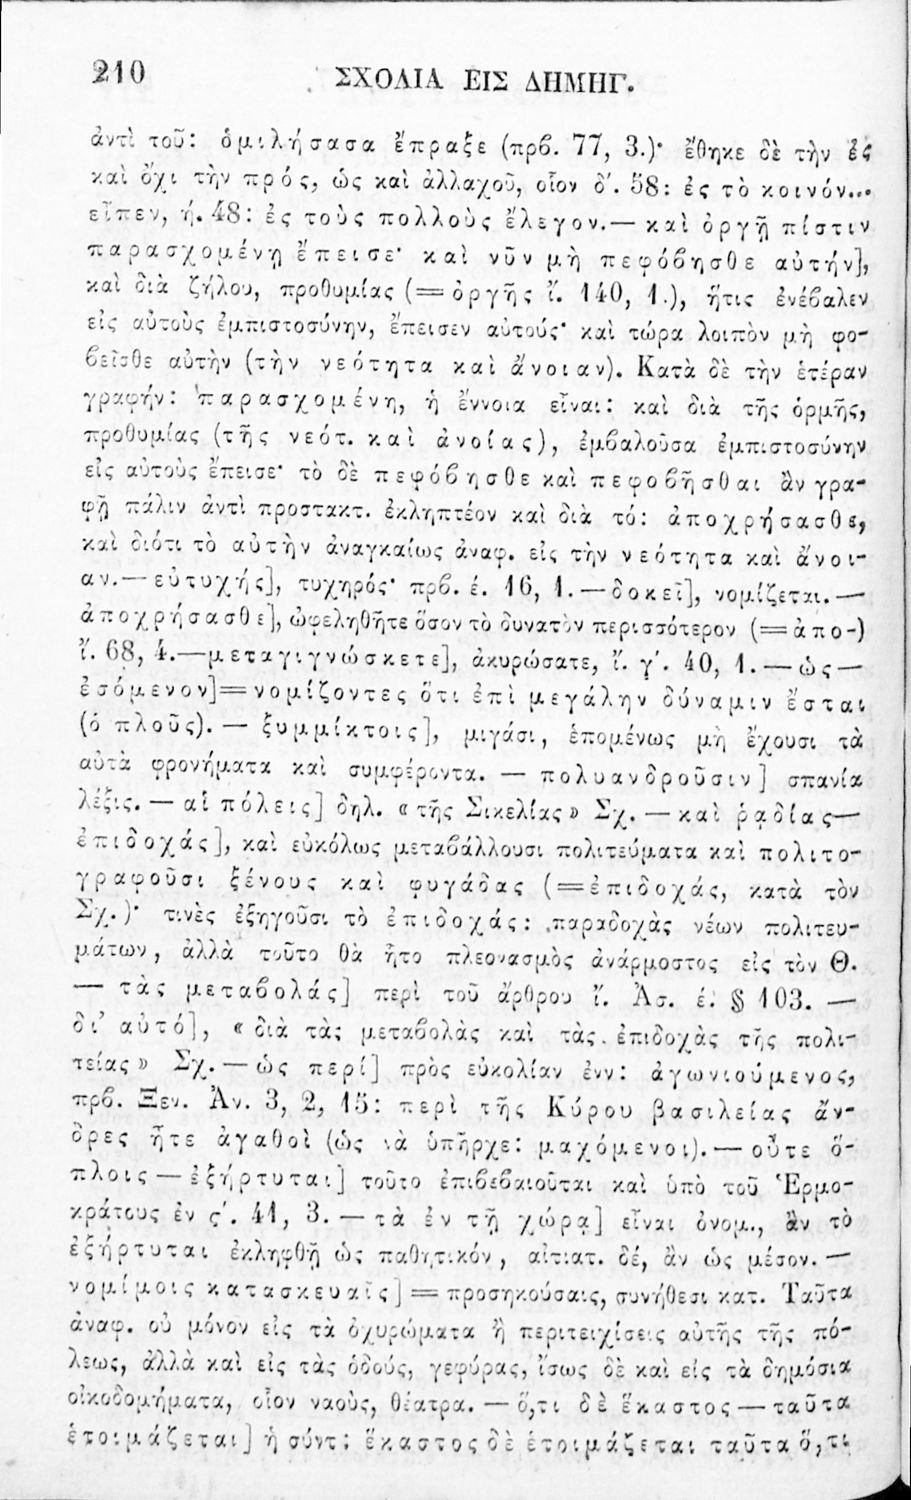 210 ΣΧΟΛΙΑ ΕΙΣ ΔΗΜΗΓ.
ἀντὶ τοῦ: ὁμιλήσασα ἔπραξε (πρβ. 77, 3.)· ἔθηκε δὲ τὴν ἐς
καὶ ὄχι τὴν πρός, ὡς καὶ ἀλλαχοῦ, οἷον δ΄. 58: ἐς τὸ κοινόν...
εἶπεν, ή. 48: ἐς τοὺς πολλοὺς ἔλεγον.— καὶ ὀργῇ πίστιν
παρασχομένη ἔπεισε· καὶ νῦν μὴ πεφόβησθε αὐτήν],
καὶ διὰ ζήλου, προθυμίας (= ὀργῆς ἴ. 140, 1.), ἥτις ἐνέβαλεν
εἰς αὐτοὺς ἐμπιστοσύνην, ἔπεισεν αὐτούς· καὶ τώρα λοιπὸν μὴ φο-
βεῖσθε αὐτὴν (τὴν νεότητα καὶ ἄνοιαν). Κατὰ δὲ τὴν ἑτέραν
γραφήν: παρασχομένη, ἡ ἔννοια εἶναι: καὶ διὰ τῆς ὁρμῆς,
προθυμίας (τῆς νεότ. καὶ ἀνοίας), ἐμβαλοῦσα ἐμπιστοσύνην
εἰς αὐτοὺς ἔπεισε· τὸ δὲ πεφόβησθε καὶ πεφοβῆσθαι ἂν γρα-
φῇ πάλιν ἀντὶ προστακτ. ἐκληπτέον καὶ διὰ τό: ἀποχρήσασθε,
καὶ διότι τὸ αὐτὴν ἀναγκαίως ἀναφ. εἰς τὴν νεότητα καὶ ἄνοι-
αν.— εὐτυχής], τυχηρός· πρβ. έ. 16, 1. — δοκεῖ], νομίζεται. —
ἀποχρήσασθε], ὠφεληθῆτε ὅσον τὸ δυνατὸν περισσότερον (=ἀπο-)
ἴ. 68, 4.—μεταγιγνώσκετε], ἀκυρώσατε, ἴ. γ΄. 40, 1. — ὡς —
ἐσόμενον]= νομίζοντες ὅτι ἐπὶ μεγάλην δύναμιν ἔσται
(ὁ πλοῦς). — ξυμμίκτοις], μιγάσι, ἑπομένως μὴ ἔχουσι τὰ
αὐτὰ φρονήματα καὶ συμφέροντα. — πολυανδροῦσιν] σπανία
λέξις. — αἱ πόλεις] δηλ. «τῆς Σικελίας» Σχ. — καὶ ῥᾳδίας—
ἐπιδοχάς], καὶ εὐκόλως μεταβάλλουσι πολιτεύματα καὶ πολιτο-
γραφοῦσι ξένους καὶ φυγάδας (=ἐπιδοχάς, κατὰ τὸν
Σχ.)· τινὲς ἐξηγοῦσι τὸ ἐπιδοχάς: παραδοχὰς νέων πολιτευ-
μάτων, ἀλλὰ τοῦτο θὰ ἦτο πλεονασμὸς ἀνάρμοστος εἰς τὸν Θ.
— τὰς μεταβολάς] περὶ τοῦ ἄρθρου ἴ. Ἀσ. έ. § 103. —
δι' αὐτό], «διὰ τὰς μεταβολὰς καὶ τὰς ἐπιδοχὰς τῆς πολι-
τείας» Σχ. — ὡς περί] πρὸς εὐκολίαν ἐνν: ἀγωνιούμενος,
πρβ. Ξεν. Ἀν. 3, 2, 15: περὶ τῆς Κύρου βασιλείας ἄν-
δρες ἦτε ἀγαθοὶ (ὡς νὰ ὑπῆρχε: μαχόμενοι). — οὔτε ὅ-
πλοις — ἐξήρτυται] τοῦτο ἐπιβεβαιοῦται καὶ ὑπὸ τοῦ Ἑρμο-
κράτους ἐν ς΄. 41, 3. — τὰ ἐν τῇ χώρᾳ] εἶναι ὀνομ., ἂν τὸ
ἐξήρτυται ἐκληφθῇ ὡς παθητικόν, αἰτιατ. δέ, ἂν ὡς μέσον. —
νομίμοις κατασκευαῖς] = προσηκούσαις, συνήθεσι κατ. Ταῦτα
ἀναφ. οὐ μόνον εἰς τὰ ὀχυρώματα ἢ περιτειχίσεις αὐτῆς τῆς πό-
λεως, ἀλλὰ καὶ εἰς τὰς ὁδούς, γεφύρας, ἴσως δὲ καὶ εἰς τὰ δημόσια
οἰκοδομήματα, οἷον ναοὺς, θέατρα. — ὅ,τι δὲ ἕκαστος — ταῦτα
ἑτοιμάζεται] ἡ σύντ: ἕκαστος δὲ ἑτοιμάζεται ταῦτα ὅ,τι